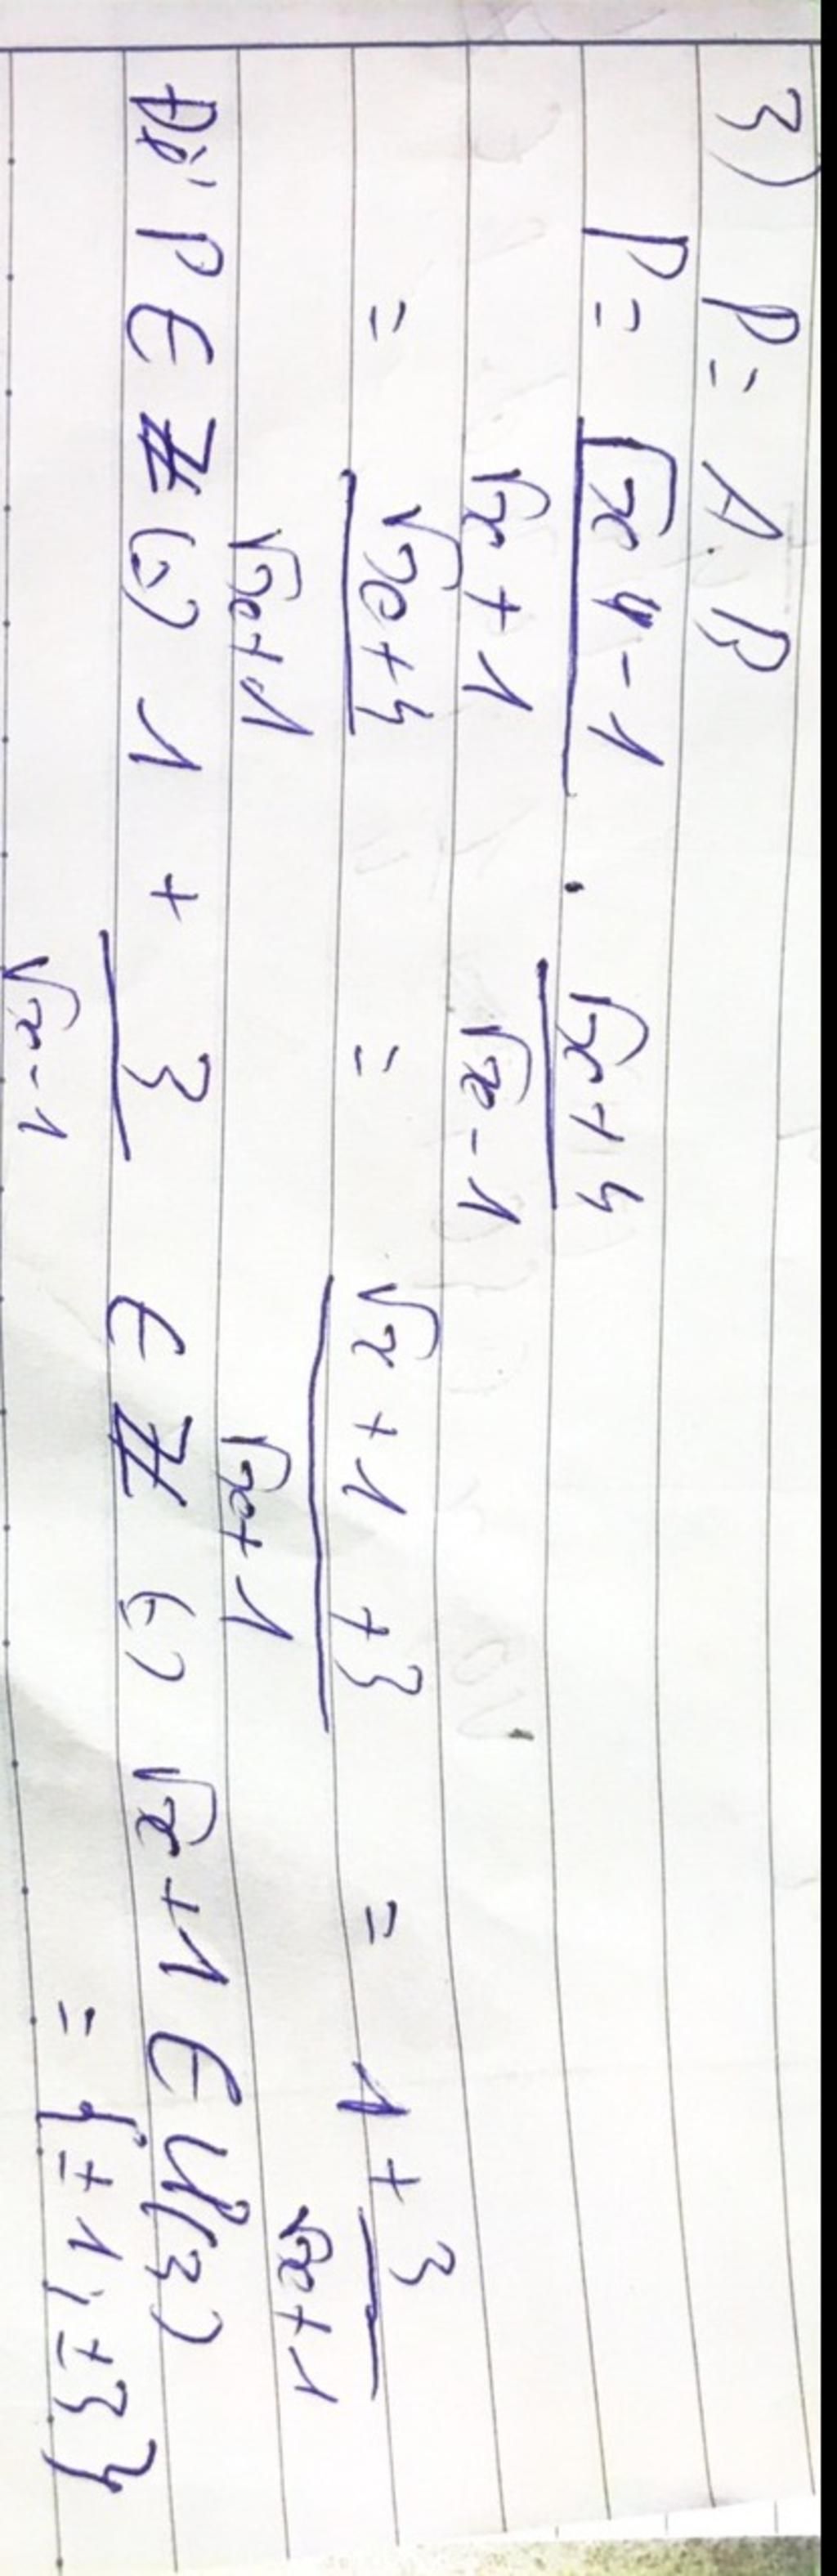 3) P = A.B
P = √x - 1 / √x + 1 . √x + 4 / √x - 1
= √x + 4 / √x + 1 = √x + 1 + 3 / √x + 1 = 1 + 3 / √x + 1
Để P ∈ Z (=) 1 + 3 / √x - 1 ∈ Z (=) √x + 1 ∈ Ư(3)
= {± 1; ± 3}